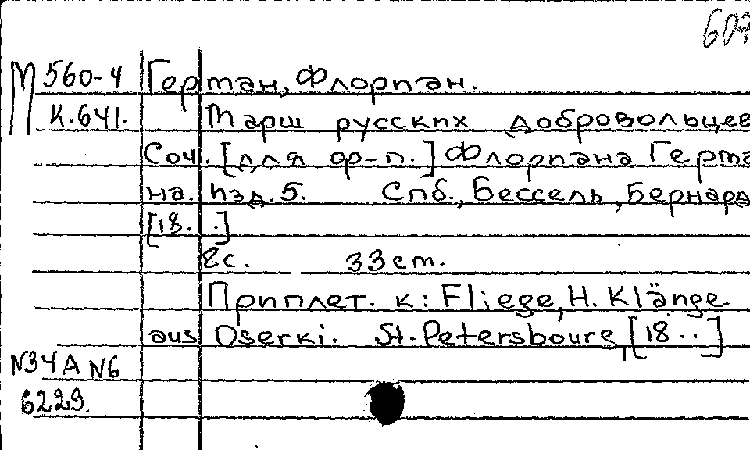 607
М 560-4 Герман, Флориан.
К.641. Марш русских добровольцев
Соч. [для ф-п.] Флориана Герма
на. Изд. 5. Спб., Бессель, Бернард
[18. .]
2с. 33 см.
Приплет. к: Fliege, H. Klänge
aus Oserki. St. Petersbourg, [18 . .]
N34A N6
6229.